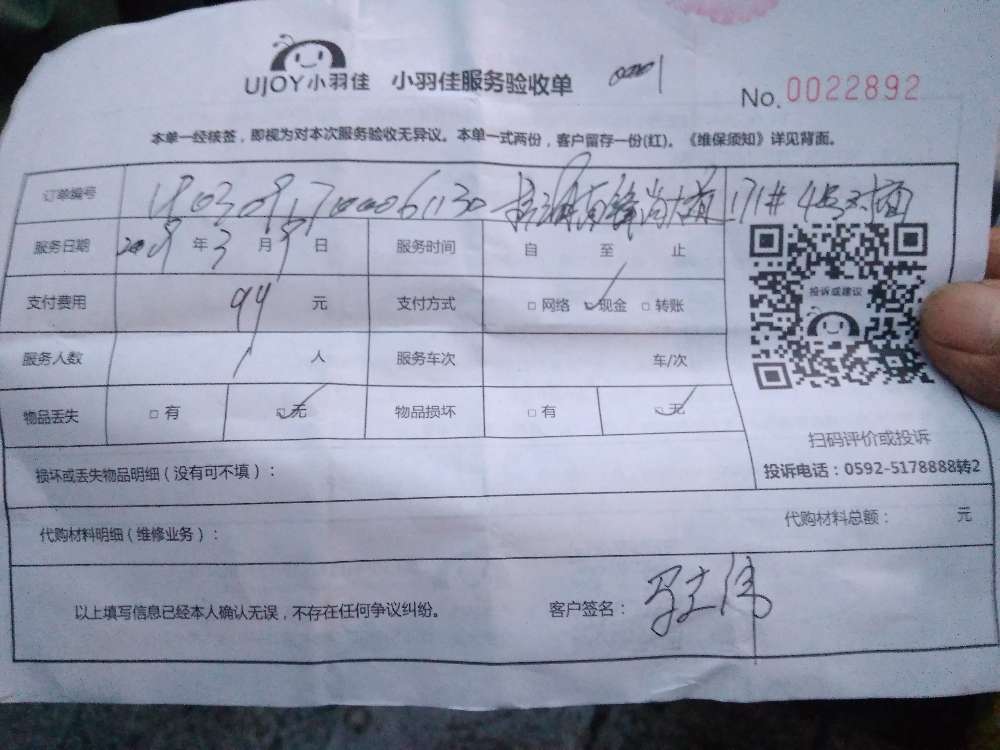 UJOY小羽佳 小羽佳服务验收单 No.0022892
本单一经核签，即视为对本次服务验收无异议。本单一式两份，客户留存一份(红)。《维保须知》详见背面。
订单编号 171#
服务日期 年3月9日 服务时间 自 至 止
投诉或建议
支付费用 94元 支付方式 □网络 ☑现金 □转账
服务人数 1人 服务车次 车/次
物品丢失 □有 ☑无 物品损坏 □有 ☑无
扫码评价或投诉
投诉电话：0592-5178888转2
损坏或丢失物品明细（没有可不填）：
代购材料明细（维修业务）： 代购材料总额： 元
以上填写信息已经本人确认无误，不存在任何争议纠纷。 客户签名：